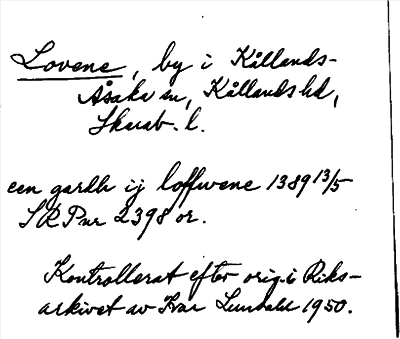 Lovene, by i Kållands-
Åsaka sn, Kållands hd,
Skarab. l.
een gardh ij loffwene 1389 13/5
SRP nr 2398 or.
Kontrollerat efter orig. i Riks-
arkivet av Ivar Lundahl 1950.